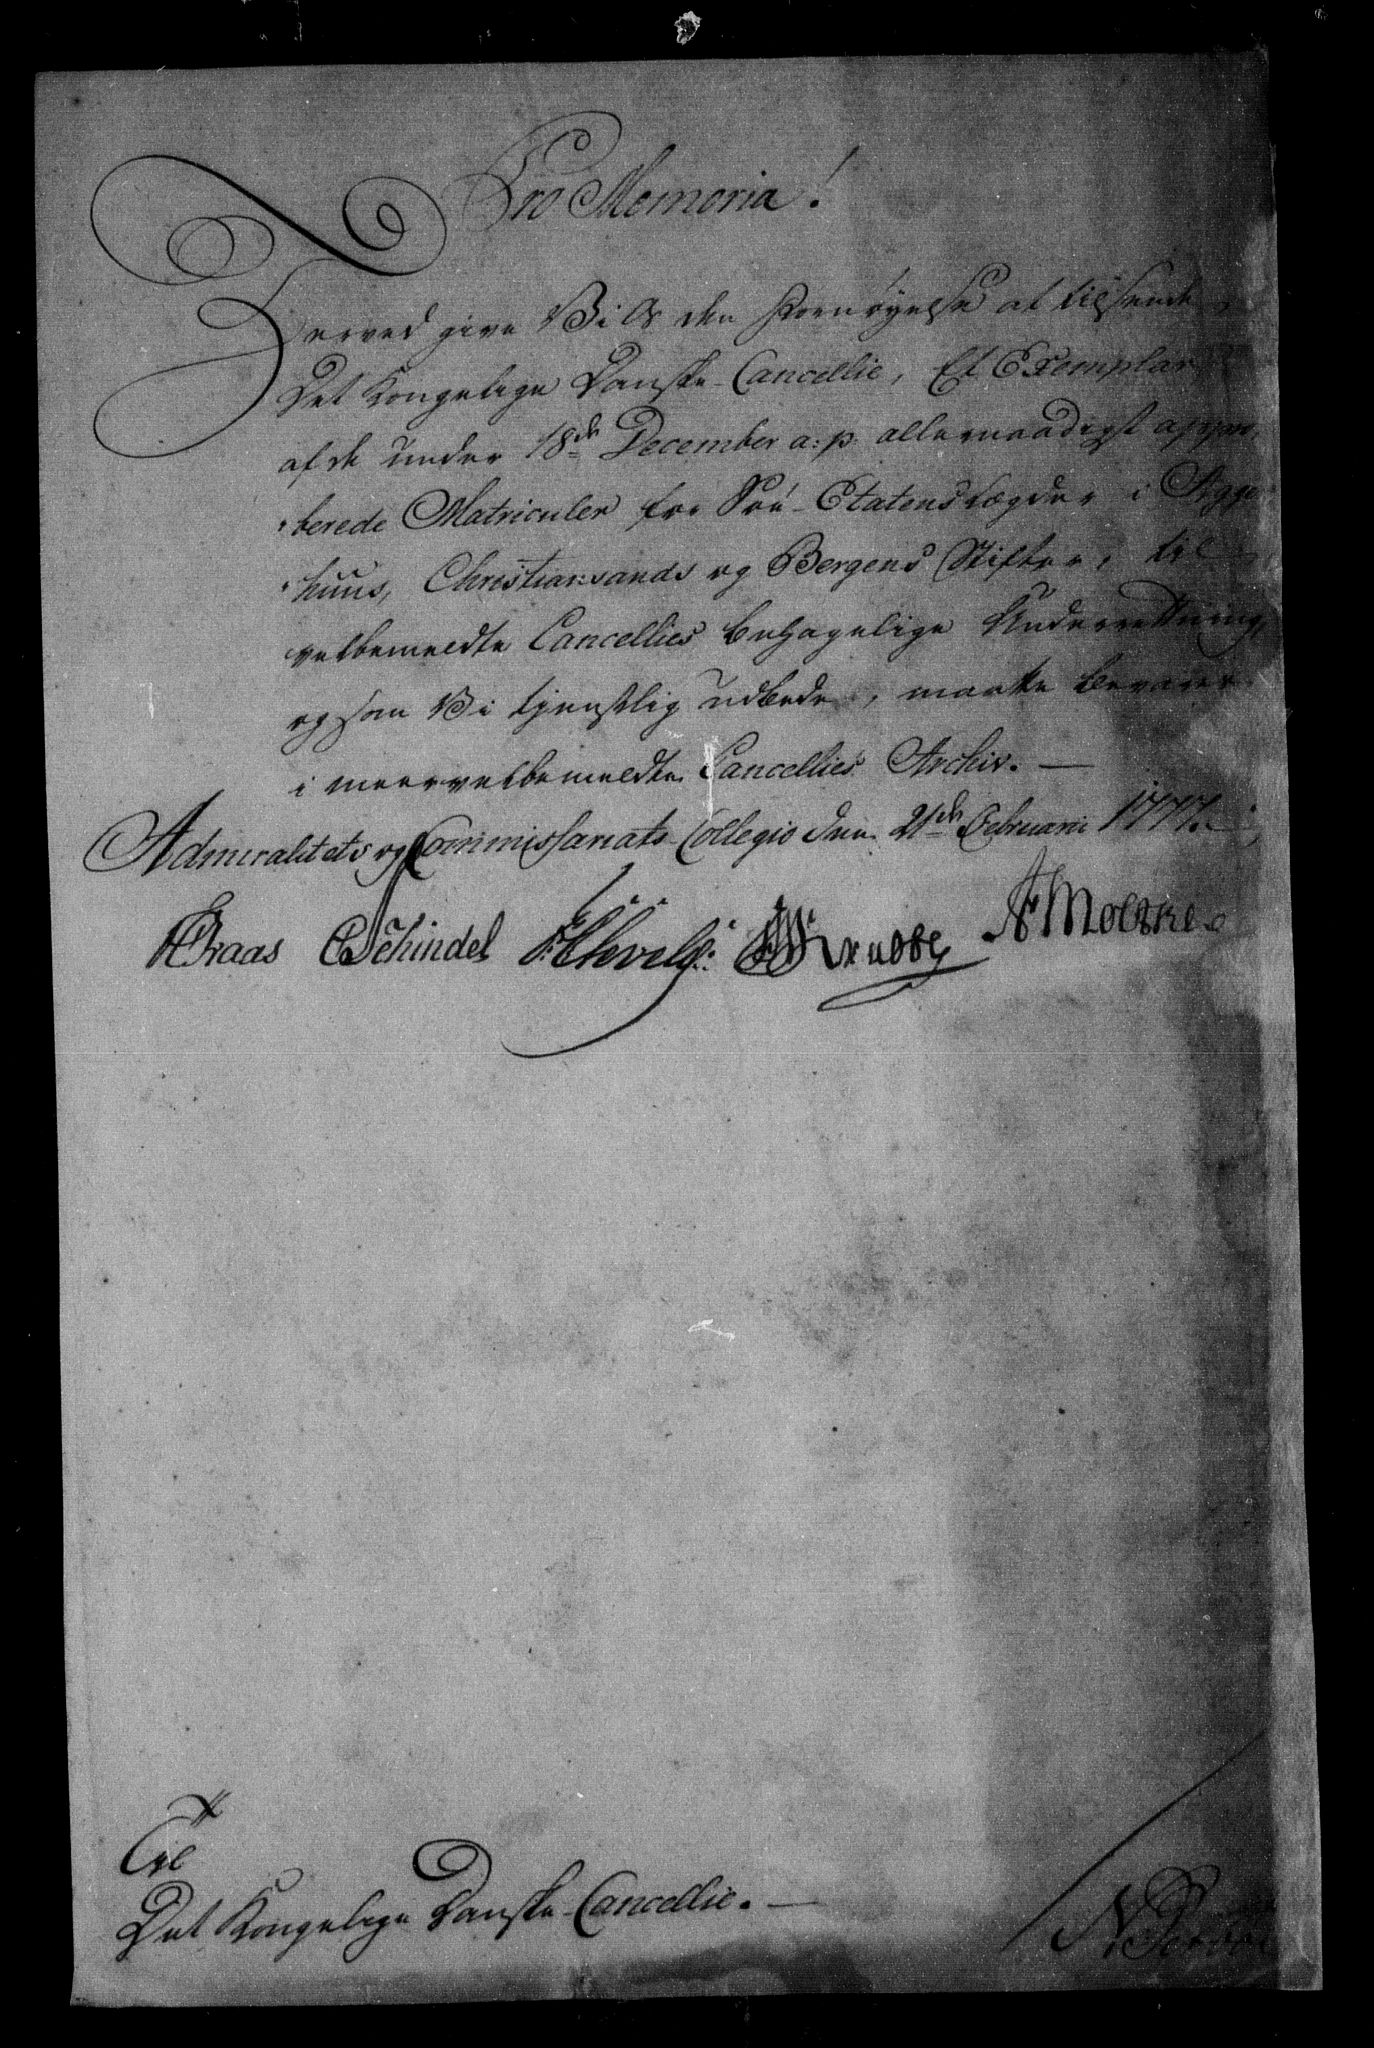 Pro Memoria!
Herved give Vi Os den Fornøyelse at tilsende
Det Kongelige Danske Cancellie, Et Exemplar
af de under 18de December a: p: allernaadigst appro-
berede Matriculer for Söe-Etatens Lægder i Agger-
huus, Christiansands og Bergens Stifter, til
velbemeldte Cancellies behagelige Underretning,
og som Vi tjenstlig udbede, maatte bevares
i meervelbemeldte Cancellies Archiv. —
Admiralitets og Commissariats Collegio den 21de Februarii 1777.
Kaas Schindel Knubbe Moltke
Til
Det Kongelige Danske Cancellie. —